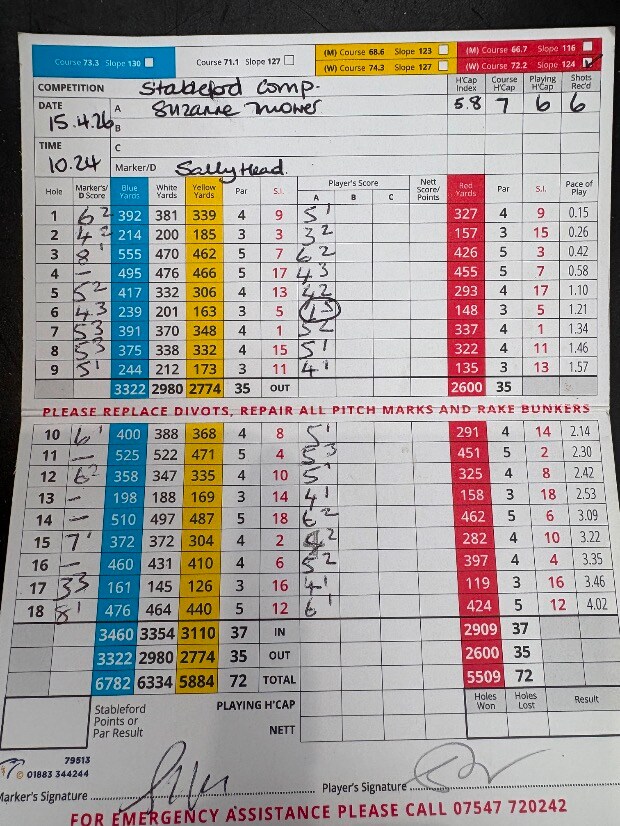 Course 73.3 Slope 130 Course 71.1 Slope 127 (M) Course 68.6 Slope 123 (M) Course 66.7 Slope 116
(W) Course 74.3 Slope 127 (W) Course 72.2 Slope 124 ✓
COMPETITION Stableford Comp. H'Cap Index Course H'Cap Playing H'Cap Shots Rec'd
DATE 15.4.26 A Suzanne Mower 5.8 7 6 6
B
TIME 10.24 C
Marker/D Sally Head.
Hole Marker's/D Score Blue Yards White Yards Yellow Yards Par S.I. Player's Score A B C Nett Score/Points Red Yards Par S.I. Pace of Play
1 6 2 392 381 339 4 9 5 1 327 4 9 0.15
2 4 2 214 200 185 3 3 3 2 157 3 15 0.26
3 8 1 555 470 462 5 7 6 2 426 5 3 0.42
4 – 495 476 466 5 17 4 3 455 5 7 0.58
5 5 2 417 332 306 4 13 4 2 293 4 17 1.10
6 4 3 239 201 163 3 5 1 5 148 3 5 1.21
7 5 3 391 370 348 4 1 5 2 337 4 1 1.34
8 5 3 375 338 332 4 15 5 1 322 4 11 1.46
9 5 1 244 212 173 3 11 4 1 135 3 13 1.57
3322 2980 2774 35 OUT 2600 35
PLEASE REPLACE DIVOTS, REPAIR ALL PITCH MARKS AND RAKE BUNKERS
10 6 1 400 388 368 4 8 5 1 291 4 14 2.14
11 – 525 522 471 5 4 5 3 451 5 2 2.30
12 6 2 358 347 335 4 10 5 1 325 4 8 2.42
13 – 198 188 169 3 14 4 1 158 3 18 2.53
14 – 510 497 487 5 18 6 2 462 5 6 3.09
15 7 1 372 372 304 4 2 4 2 282 4 10 3.22
16 – 460 431 410 4 6 5 2 397 4 4 3.35
17 3 3 161 145 126 3 16 4 1 119 3 16 3.46
18 8 1 476 464 440 5 12 6 1 424 5 12 4.02
3460 3354 3110 37 IN 2909 37
3322 2980 2774 35 OUT 2600 35
6782 6334 5884 72 TOTAL 5509 72
Stableford Points or Par Result PLAYING H'CAP Holes Won Holes Lost Result
NETT
79513
© 01883 344244
Marker's Signature Player's Signature
FOR EMERGENCY ASSISTANCE PLEASE CALL 07547 720242